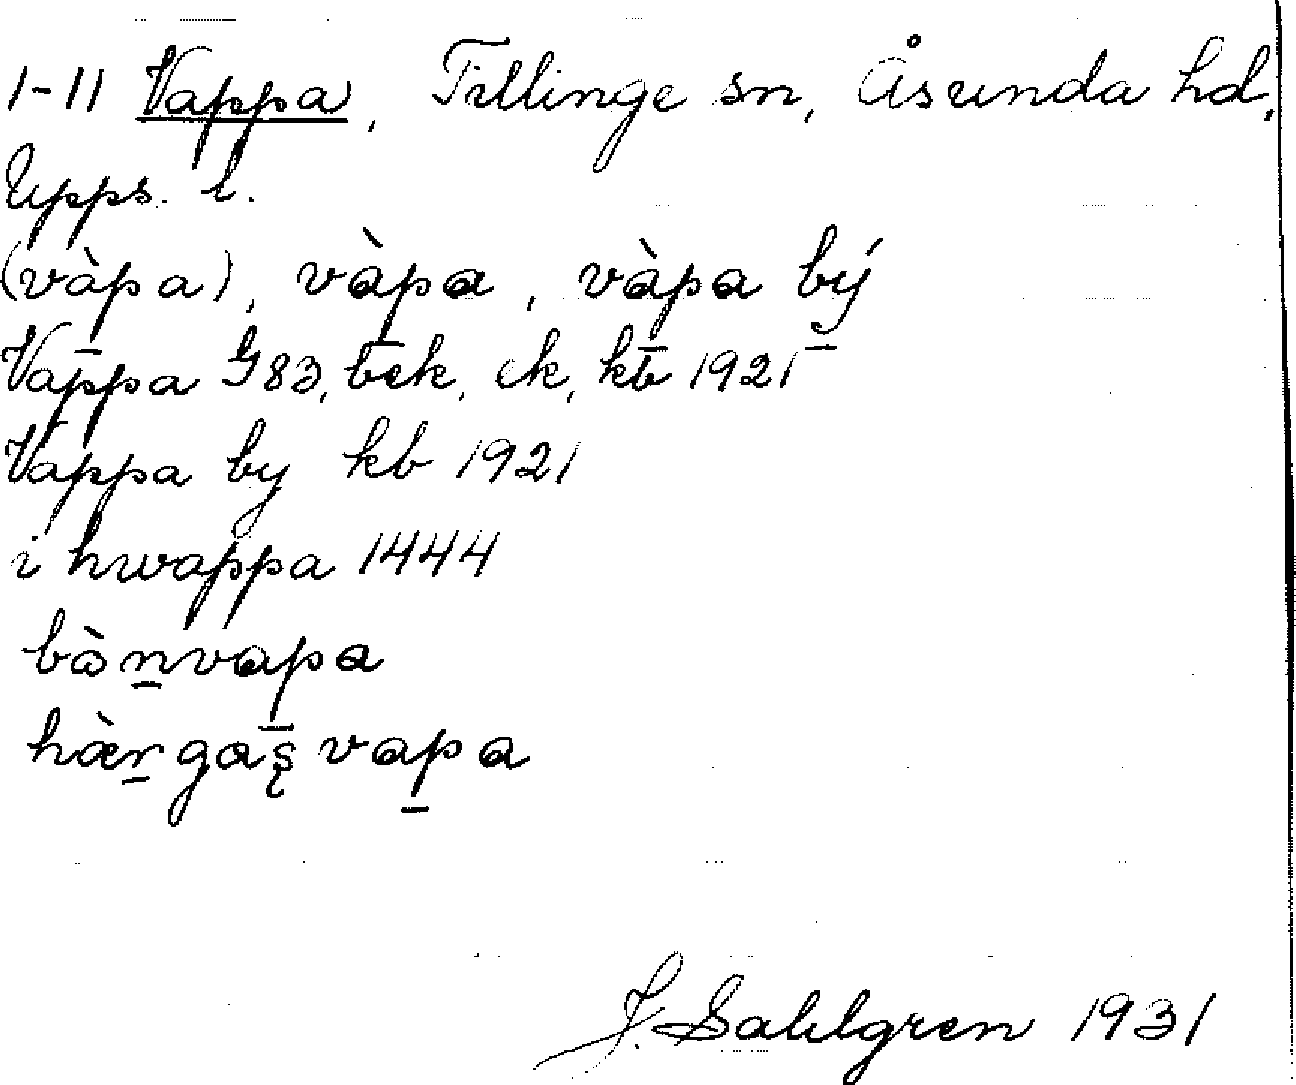 1-11 Vappa, Tillinge sn, Åsunda hd,
Upps. l.
(vàp̱a), vàp̱a, vàp̱a bý̱
Vappa G83, bek, ek, kb 1921
Vappa by kb 1921
i hwappa 1444
bòṉvap̱a
hæ̀ṟgas̨vap̱a
J. Sahlgren 1931